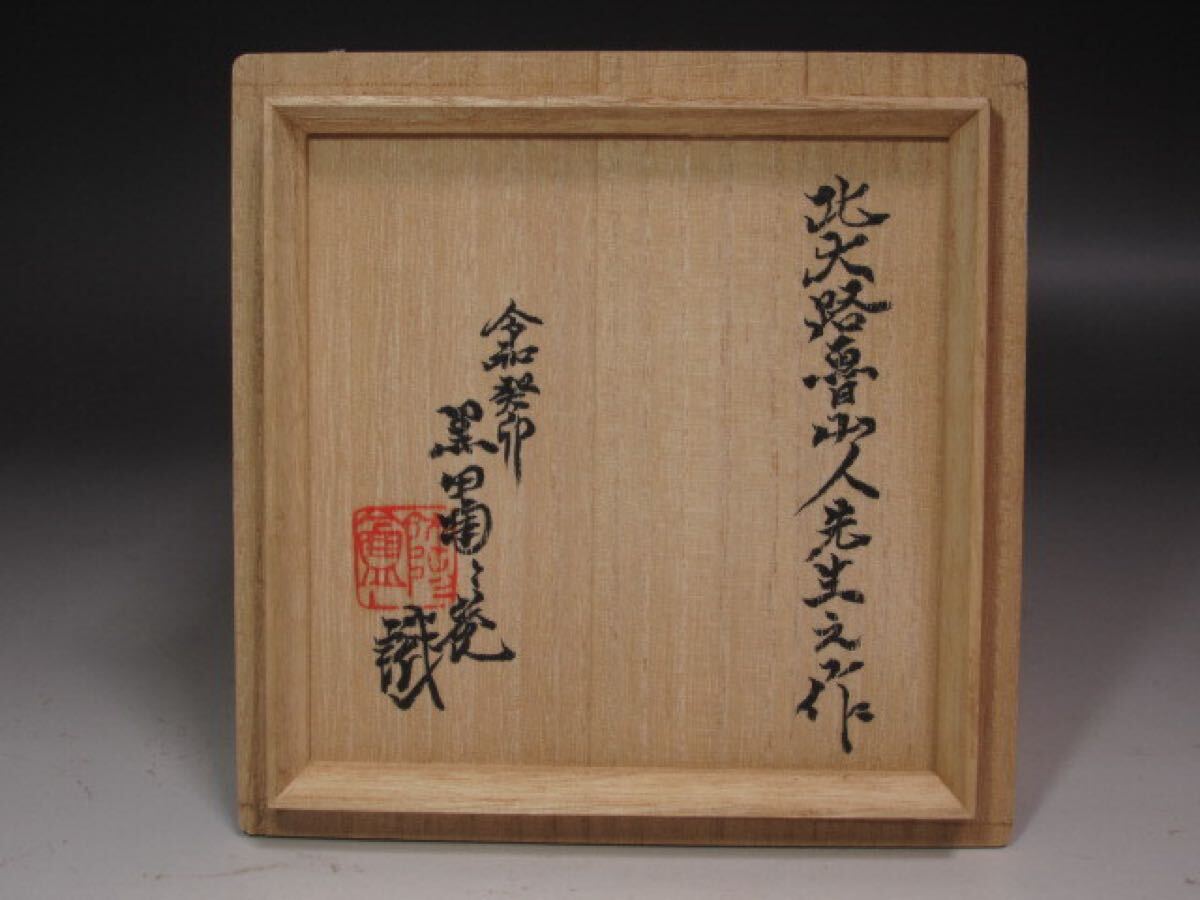 北大路魯山人先生之作
令和癸卯
黒田陶々菴
識